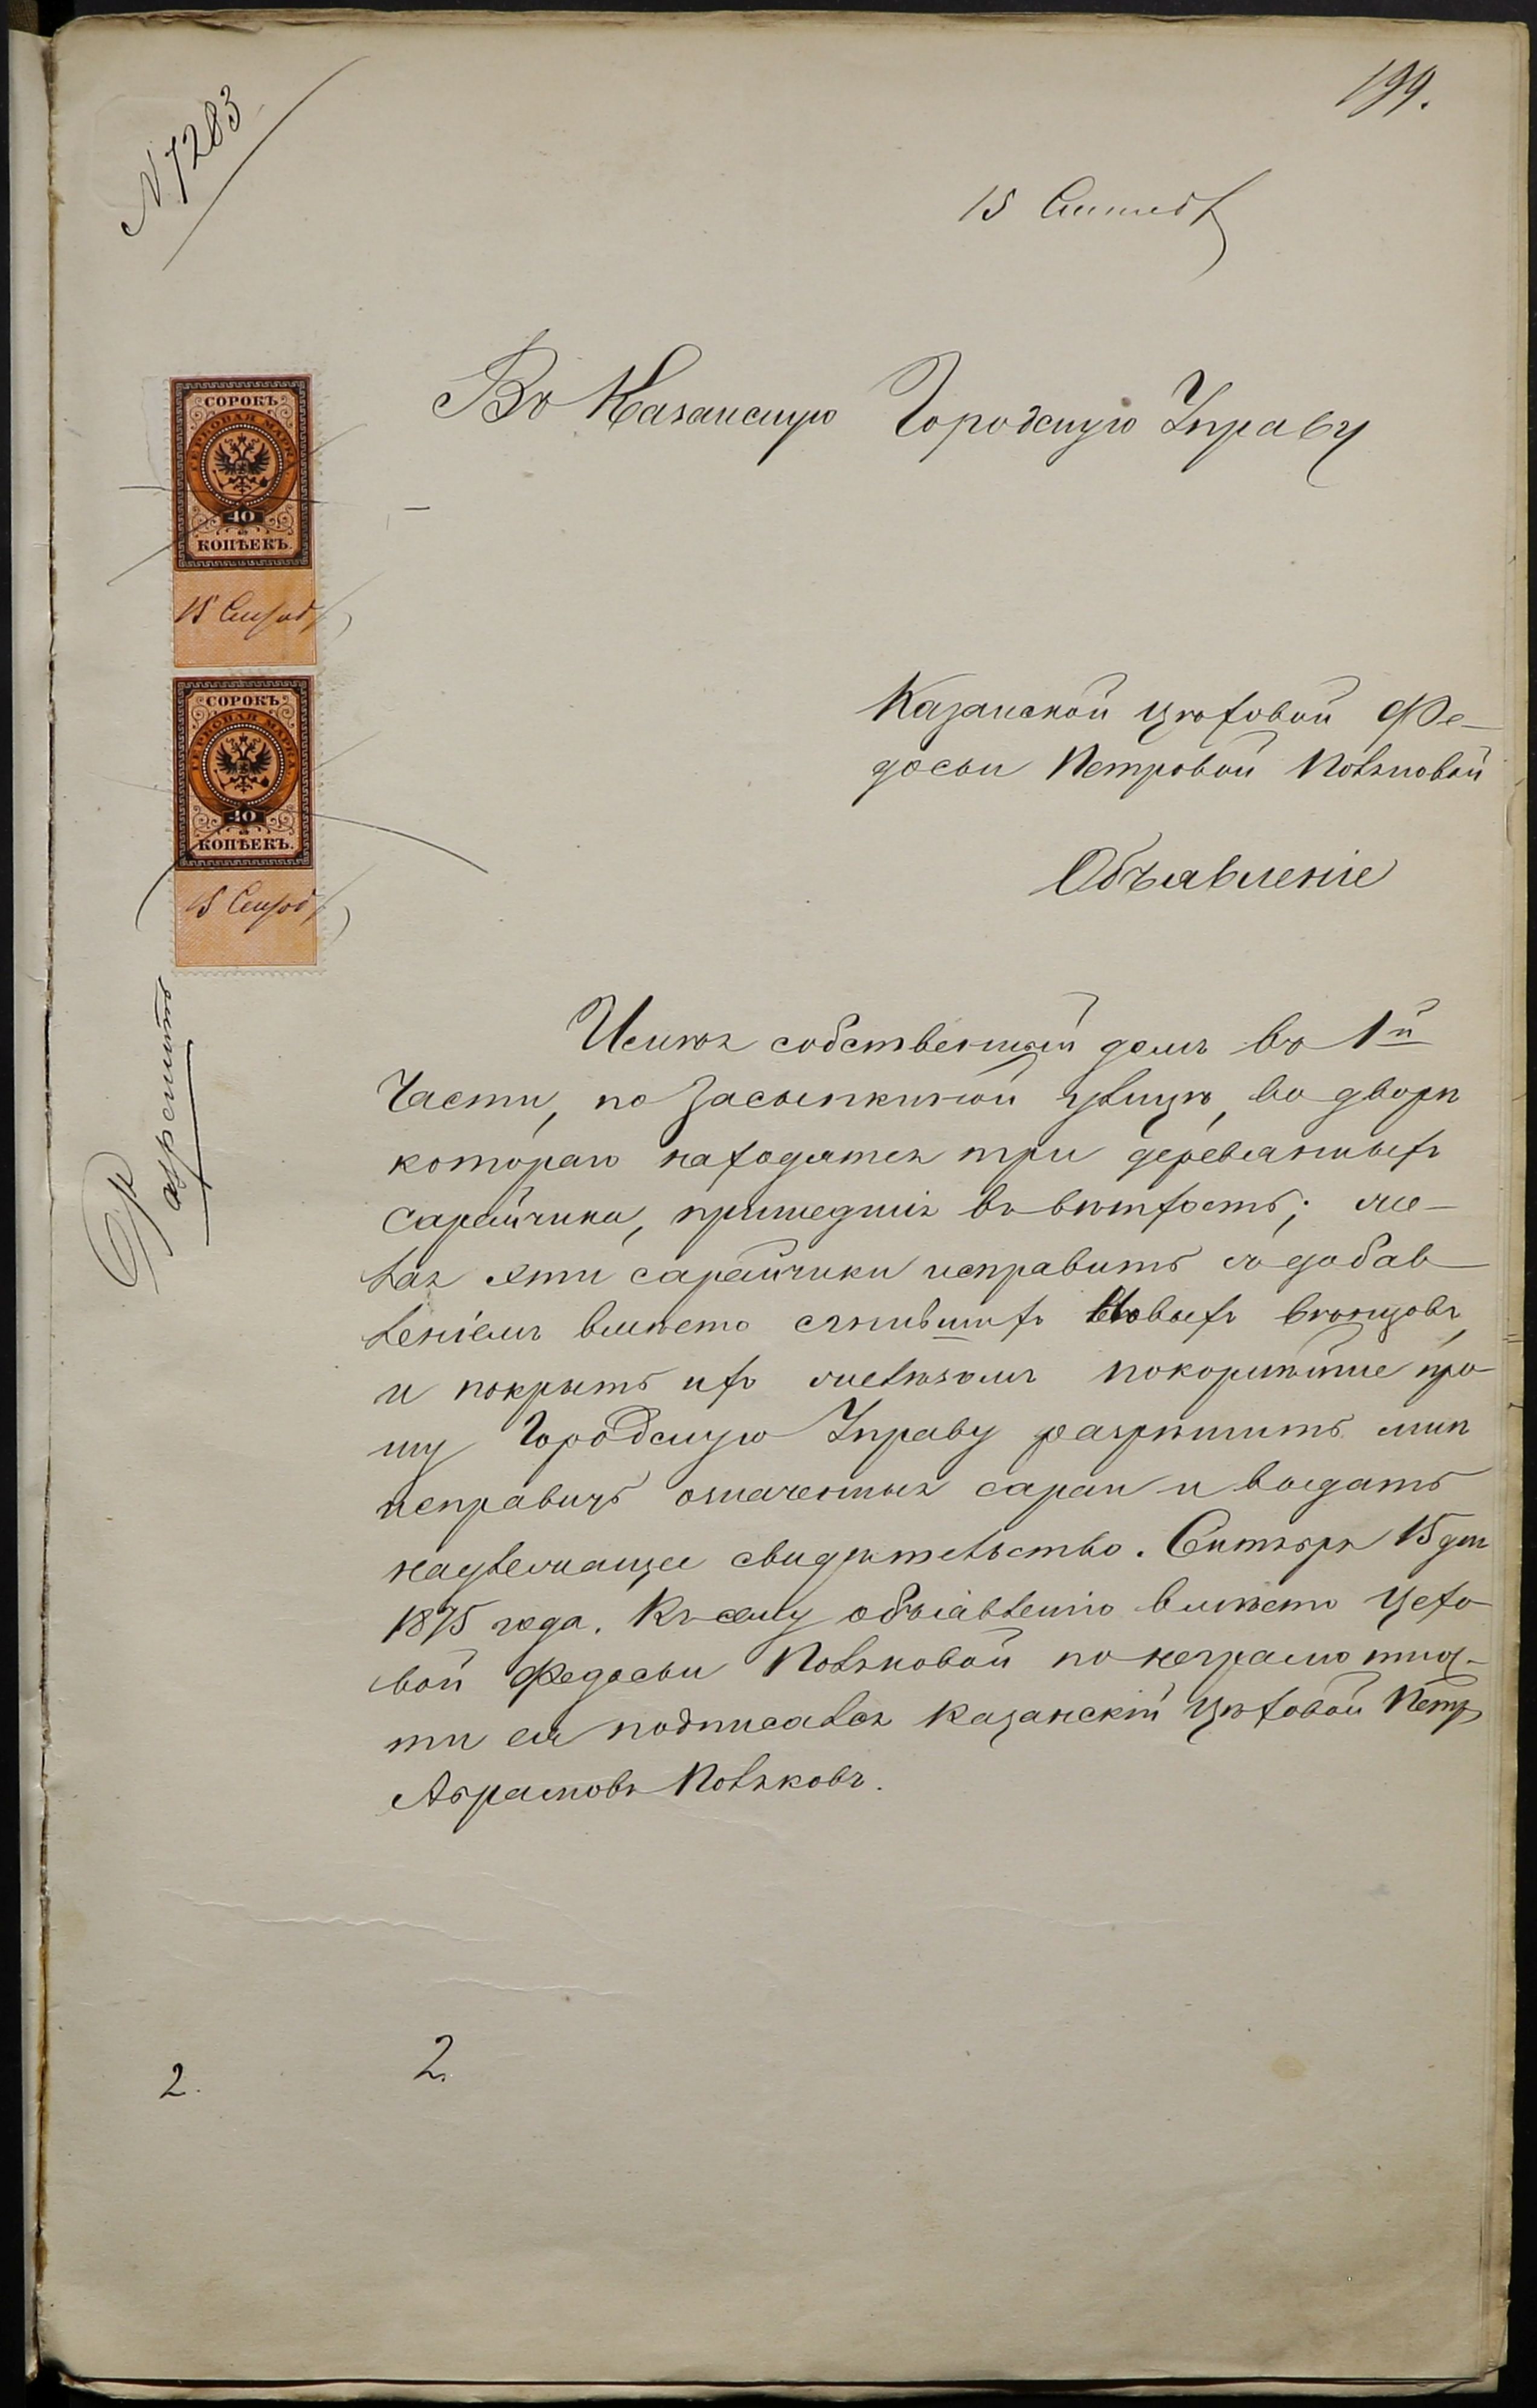 199.
N 7283
15 Сентяб
Въ Казанскую Городскую Управу
СОРОКЪ
ГЕРБОВАЯ МАРКА
40
КОПѢЕКЪ.
15 Сентяб
СОРОКЪ
ГЕРБОВАЯ МАРКА
40
КОПѢЕКЪ.
15 Сентяб
Казанской цѣховой Фе-
досьи Петровой Поляковой
Объявленіе
Имѣя собственный домъ въ 1й
части, по Засыпкиной улицѣ, во дворѣ
котораго находятся три деревянныхъ
сарайчика, пришедшія въ вѣтхость; же-
лая эти сарайчики исправить съ добав
леніемъ вмѣсто сгнившихъ новыхъ вѣнцовъ,
и покрыть ихъ желѣзомъ покорнѣйше про-
шу Городскую Управу разрѣшить мнѣ
исправить означенныя сараи и выдать
надлежащее свидѣтельство. Сентября 15 дня
1875 года. Къ сему объявленію вмѣсто Цехо-
вой Федосьи Поляковой по неграмотнос-
ти ея подписался Казанскій Цѣховой Петръ
Абрамовъ Поляковъ.
2.
2.